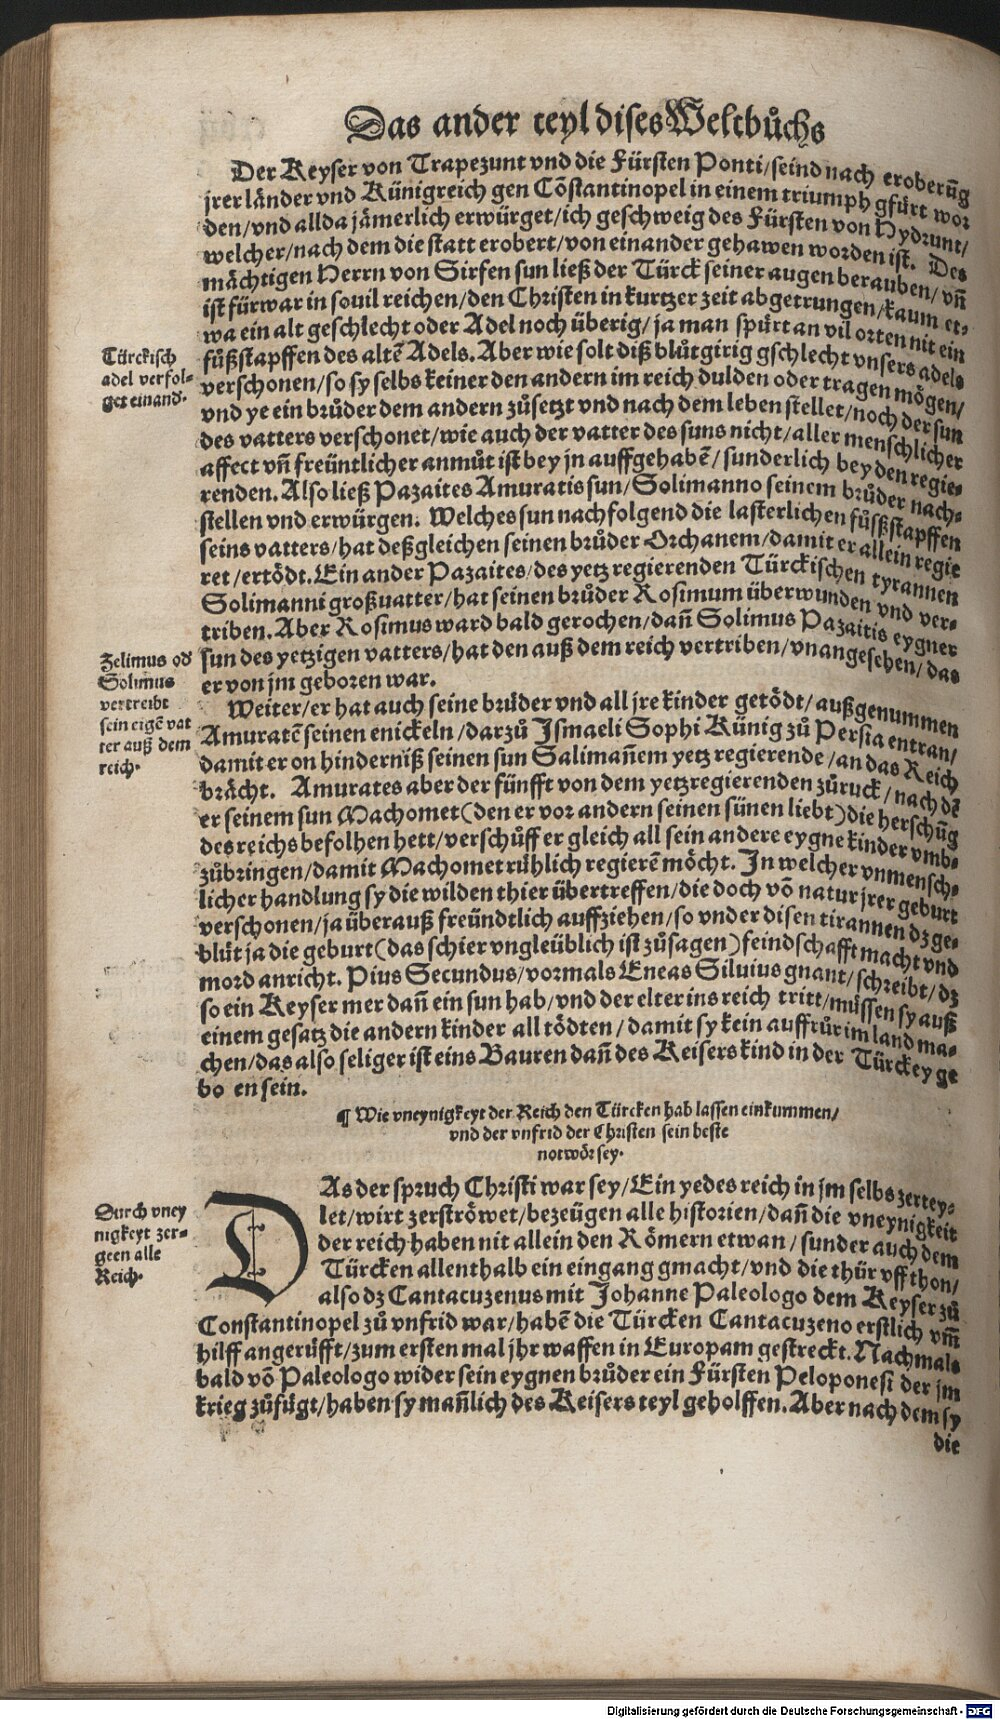 Das ander teyl dises Weltbůchs
Der Keyser von Trapezunt vnd die Fürsten Ponti/seind nach eroberūg
jrer länder vnd Künigreich gen Cōstantinopel in einem triumph gfürt wor
den/vnd allda jämerlich erwürget/ich geschweig des Fürsten von Hydrunt/
welcher/nach dem die statt erobert/von einander gehawen worden ist. Des
mächtigen Herrn von Sirfen sun ließ der Türck seiner augen berauben/vn̄
ist fürwar in souil reichen/den Christen in kurtzer zeit abgetrungen/kaum et-
wa ein alt geschlecht oder Adel noch überig/ja man spürt an vil orten nit ein
fůßstapffen des altē Adels. Aber wie solt diß blůtgirig gschlecht vnsers adels
verschonen/so sy selbs keiner den andern im reich dulden oder tragen mögen/
vnd ye ein brůder dem andern zůsetzt vnd nach dem leben stellet/noch der sun
des vatters verschonet/wie auch der vatter des suns nicht/aller menschlicher
affect vn̄ freüntlicher anmůt ist bey jn auffgehabē/sunderlich bey den regie-
renden. Also ließ Pazaites Amuratis sun/Solimanno seinem brůder nach-
stellen vnd erwürgen. Welches sun nachfolgend die lasterlichen fůßstapffen
seins vatters/hat deßgleichen seinen brůder Orchanem/damit er allein regie
ret/ertödt. Ein ander Pazaites/des yetz regierenden Türckischen tyrannen
Solimanni großuatter/hat seinen brůder Rosimum überwunden vnd ver-
triben. Aber Rosimus ward bald gerochen/dan̄ Solimus Pazaitis eygner
sun des yetzigen vatters/hat den auß dem reich vertriben/vnangesehen/das
er von jm geboren war.
Weiter/er hat auch seine brüder vnd all jre kinder getödt/außgenummen
Amuratē seinen enickeln/darzů Ismaeli Sophi Künig zů Persia entran/
damit er on hinderniß seinen sun Saliman̄em yetz regierende/an das Reich
brächt. Amurates aber der fünfft von dem yetzregierenden zůruck/nach dē
er seinem sun Machomet(den er vor andern seinen sünen liebt)die herschūg
des reichs befolhen hett/verschůff er gleich all sein andere eygne kinder vmb-
zůbringen/damit Machomet rühlich regierē möcht. In welcher vnmensch-
licher handlung sy die wilden thier übertreffen/die doch vō natur jrer geburt
verschonen/ja überauß freündtlich auffziehen/so vnder disen tirannen dz ge-
blüt ja die geburt(das schier vngleüblich ist zůsagen)feindschafft macht vnd
mord anricht. Pius Secundus/vormals Eneas Siluius gnant/schreibt/dz
so ein Keyser mer dan̄ ein sun hab/vnd der elter ins reich tritt/müssen sy auß
einem gesatz die andern kinder all tödten/damit sy kein auffrůr im land ma-
chen/das also seliger ist eins Bauren dan̄ des Keisers kind in der Türckey ge
bo en sein.
Türckisch
adel verfol-
get einand.
Zelimus od
Solimus
vertreibt
sein eigē vat
ter auß dem
reich.
¶ Wie vneynigkeyt der Reich den Türcken hab lassen einkummen/
vnd der vnfrid der Christen sein beste
notwör sey.
Durch vney
nigkeyt zer-
geen alle
Reich.
DAs der spruch Christi war sey/Ein yedes reich in jm selbs zertey-
let/wirt zerströwet/bezeügen alle historien/dan̄ die vneynigkeit
der reich haben nit allein den Römern etwan/sunder auch dem
Türcken allenthalb ein eingang gmacht/vnd die thür vff thon/
also dz Cantacuzenus mit Johanne Paleologo dem Keyser zů
Constantinopel zů vnfrid war/habē die Türcken Cantacuzeno erstlich vm̄
hilff angerüfft/zum ersten mal jhr waffen in Europam gestreckt. Nachmals
bald vō Paleologo wider sein eygnen brůder ein Fürsten Peloponesi der jm
krieg zůfügt/haben sy man̄lich des Keisers teyl geholffen. Aber nach dem sy
die
Digitalisierung gefördert durch die Deutsche Forschungsgemeinschaft - DFG